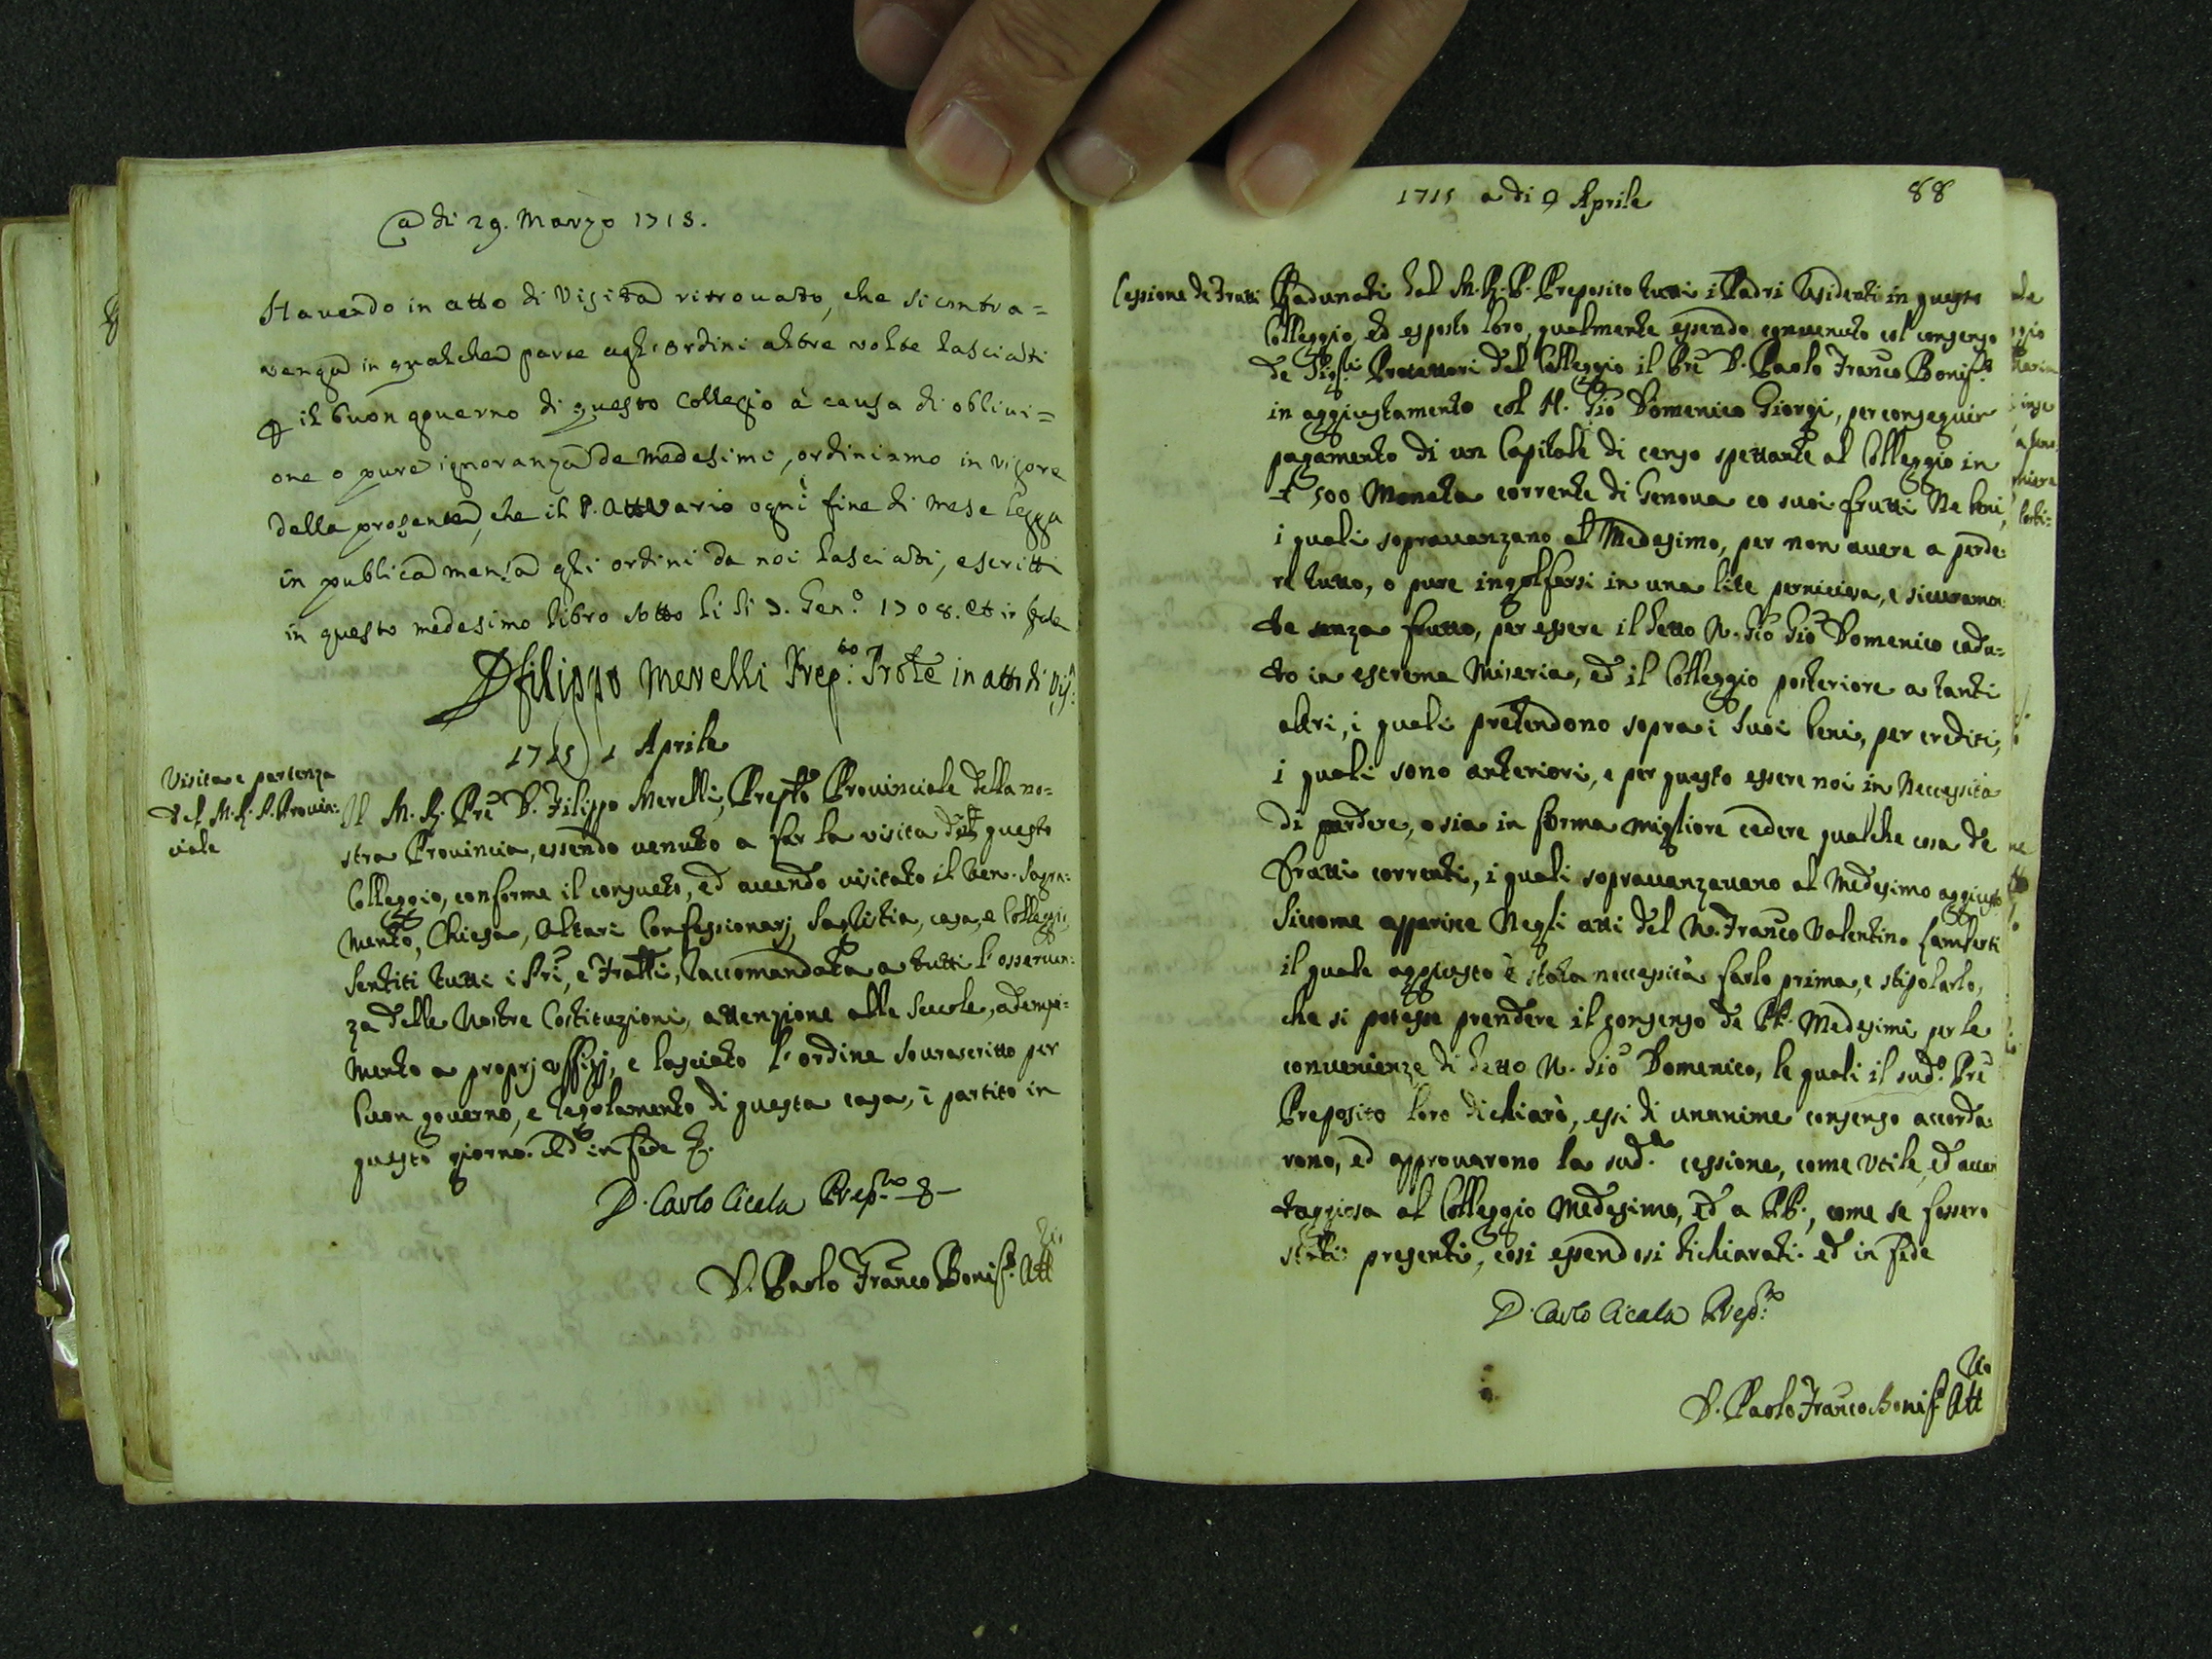 a di 29. Marzo 1715.
Havendo in atto di Visita ritrovato, che si contra=
venga in qualche parte agli ordini altre volte lasciati
p il buon governo di questo Collegio à causa di oblivi=
one o pure ignoranza de medesimi, ordiniamo in vigore
della presente, che il P. Attuario ogni fine di mese legga
in publica mensa gli ordini da noi lasciati, e scritti
in questo medesimo libro sotto li di 7. Gen.o 1708. et in fede
D filippo Merelli Prep.to Prole in atto di Vis.a
1715 1 Aprile
Visita e partenza
del M. R. P. Provin:
ciale
Il M. R. Pre D. Filippo Merelli, Prepto Provinciale della no=
stra Provincia, essendo venuto a far la visita di questo
Colleggio, conforme il consueto, ed avendo visitato il Ven. Sagra:
mento, Chiesa, Altari Confessionarj, Sagristia, casa, e Colleggio,
sentiti tutti i Pri, e Fratti, raccomandata a tutti l'osservan:
za delle Nostre Costituzioni, attenzione alle Scuole, adempi:
mento a proprj uffizj, e lasciato l'ordine sourascritto per
buon governo, e regolamento di questa casa, è partito in
questo giorno. Ed in fede
D. Carlo Cicala Prep.to
D. Paolo Franco Bonif.o Att.rio
1715 a di 9 Aprile
88
Cessione de frutti
Radunati dal M. R. P. Preposito tutti i Padri residenti in questo
Colleggio, ed esposto loro, qualmente essendo convenuto col consenso
de Sig.ri Protettori del Colleggio il Pre D. Paolo Franco Bonif.o
in aggiustamento col N. Gio Domenico Giorgi, per conseguir
pagamento di un Capitale di censo spettante al Colleggio in
500 Moneta corrente di Genova co suoi frutti Ne beni,
i quali sopravanzano al Medesimo, per non avere a perde
re tutto, o pure ingolfarsi in una lite perniciosa, e sicuramen
te senza frutto, per essere il detto N. Gio Gio Domenico cadu=
to in estrema Miseria, ed il Colleggio posteriore a tanti
altri, i quali pretendono sopra i suoi beni, per crediti,
i quali sono anteriori, e per questo essere noi in Necessità
di perdere, o sia in forma migliore cedere qualche cosa de
frutti correnti, i quali sopravanzavano al Medesimo aggiusto
siccome apparisce Negli atti del N. Franco Valentino Lamberti
il quale aggiusto è stata necessità farlo prima, e stipolarlo,
che si potesse prendere il consenso de PP. Medesimi per le
convenienze di detto N. Gio Domenico, le quali il sud.o Pre
Preposito loro dichiarò, essi di unanime consenso accorda
rono, ed approvarono la sud.a cessione, come utile, ed avan
taggiosa al Colleggio Medesimo, ed a PP., come se fossero
stati presenti, cosi essendosi dichiarati. ed in fede
D. Carlo Cicala Prep.to
D. Paolo Franco Bonif.o Att.rio